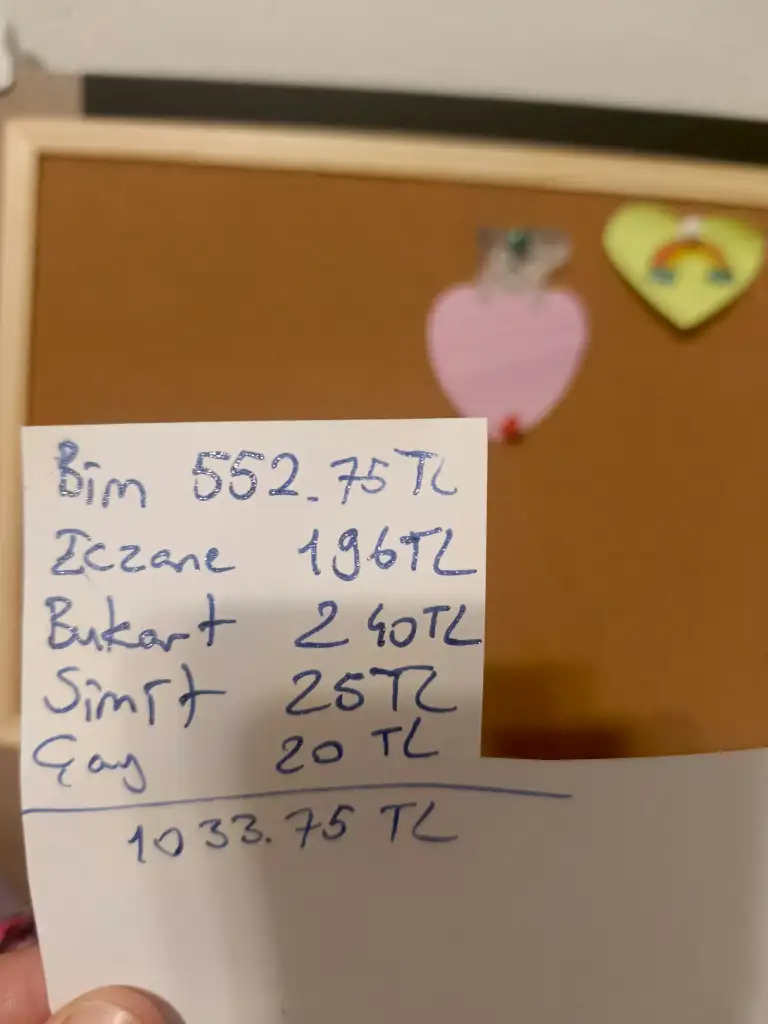 Bim 552.75 TL
Eczane 196 TL
Bukart 240 TL
Simit 25 TL
Çay 20 TL
1033.75 TL